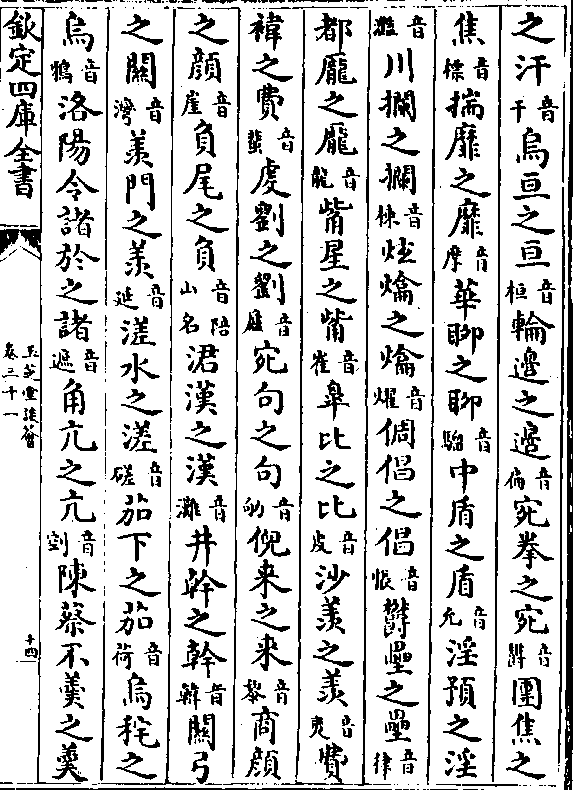 之汗音干烏亘之亘音桓輪邊之邊音偏宛拳之宛音鬱團焦之
焦音標揣靡之靡音摩華聊之聊音騶中盾之盾音允淫預之淫
音灩川攔之攔音棟炫爚之爚音燿倜倡之倡音悵鬱壘之壘音律
都龐之龐音龍觜星之觜音崔皋比之比音皮沙羡之羡音夷費
褘之費音蜚虔劉之劉音廔宛句之句音劬倪来之来音黎商顔
之顔音崖負尾之負音陪山名涒漢之漢音灘井幹之幹音韓關弓
之關音灣羡門之羡音延溠水之溠音磋茄下之茄音荷烏秺之
烏音鴉洛陽令諸於之諸音遮角亢之亢音剛陳蔡不羹之羹
欽定四庫全書
玉芝堂談薈
卷三十一
十四